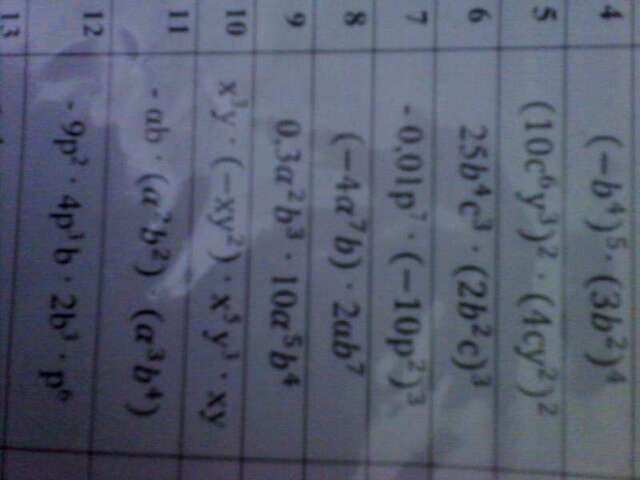 4 (−b⁴)⁵ · (3b²)⁴
5 (10c⁶y³)² · (4cy²)²
6 25b⁴c³ · (2b²c)³
7 - 0,01p⁷ · (−10p²)³
8 (−4a⁷b) · 2ab⁷
9 0,3a²b³ · 10a⁵b⁴
10 · (−xy²) · · xy
11 - ab · (a²b²) (a³b⁴)
12 - 9p² · · · p⁶
13